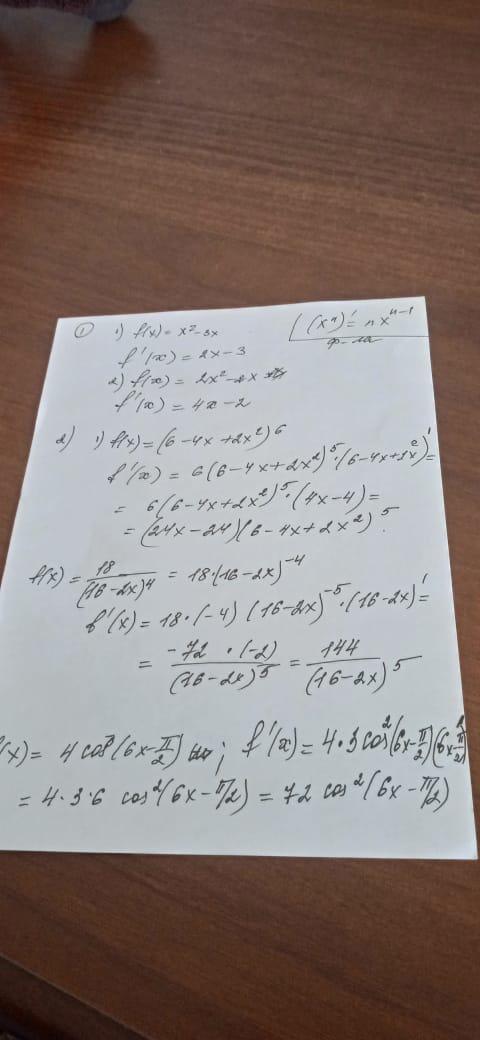 ① 1) f(x) = x² - 3x
(xⁿ)' = nxⁿ⁻¹
ф-ла
f'(x) = 2x - 3
2) f(x) = 2x² - 2x
f'(x) = 4x - 2
2) 1) f(x) = (6 - 4x + 2x²)⁶
f'(x) = 6(6 - 4x + 2x²)⁵ · (6 - 4x + 2x²)' =
= 6(6 - 4x + 2x²)⁵ · (4x - 4) =
= (24x - 24)(6 - 4x + 2x²)⁵.
f(x) = 18/(16 - 2x)⁴ = 18 · (16 - 2x)⁻⁴
f'(x) = 18 · (-4) (16 - 2x)⁻⁵ · (16 - 2x)' =
= -72 · (-2)/(16 - 2x)⁵ = 144/(16 - 2x)⁵
f(x) = 4 cos³(6x - π/2) ; f'(x) = 4 · 3 cos²(6x - π/2)(6x - π/2)'
= 4 · 3 · 6 cos²(6x - π/2) = 72 cos²(6x - π/2)